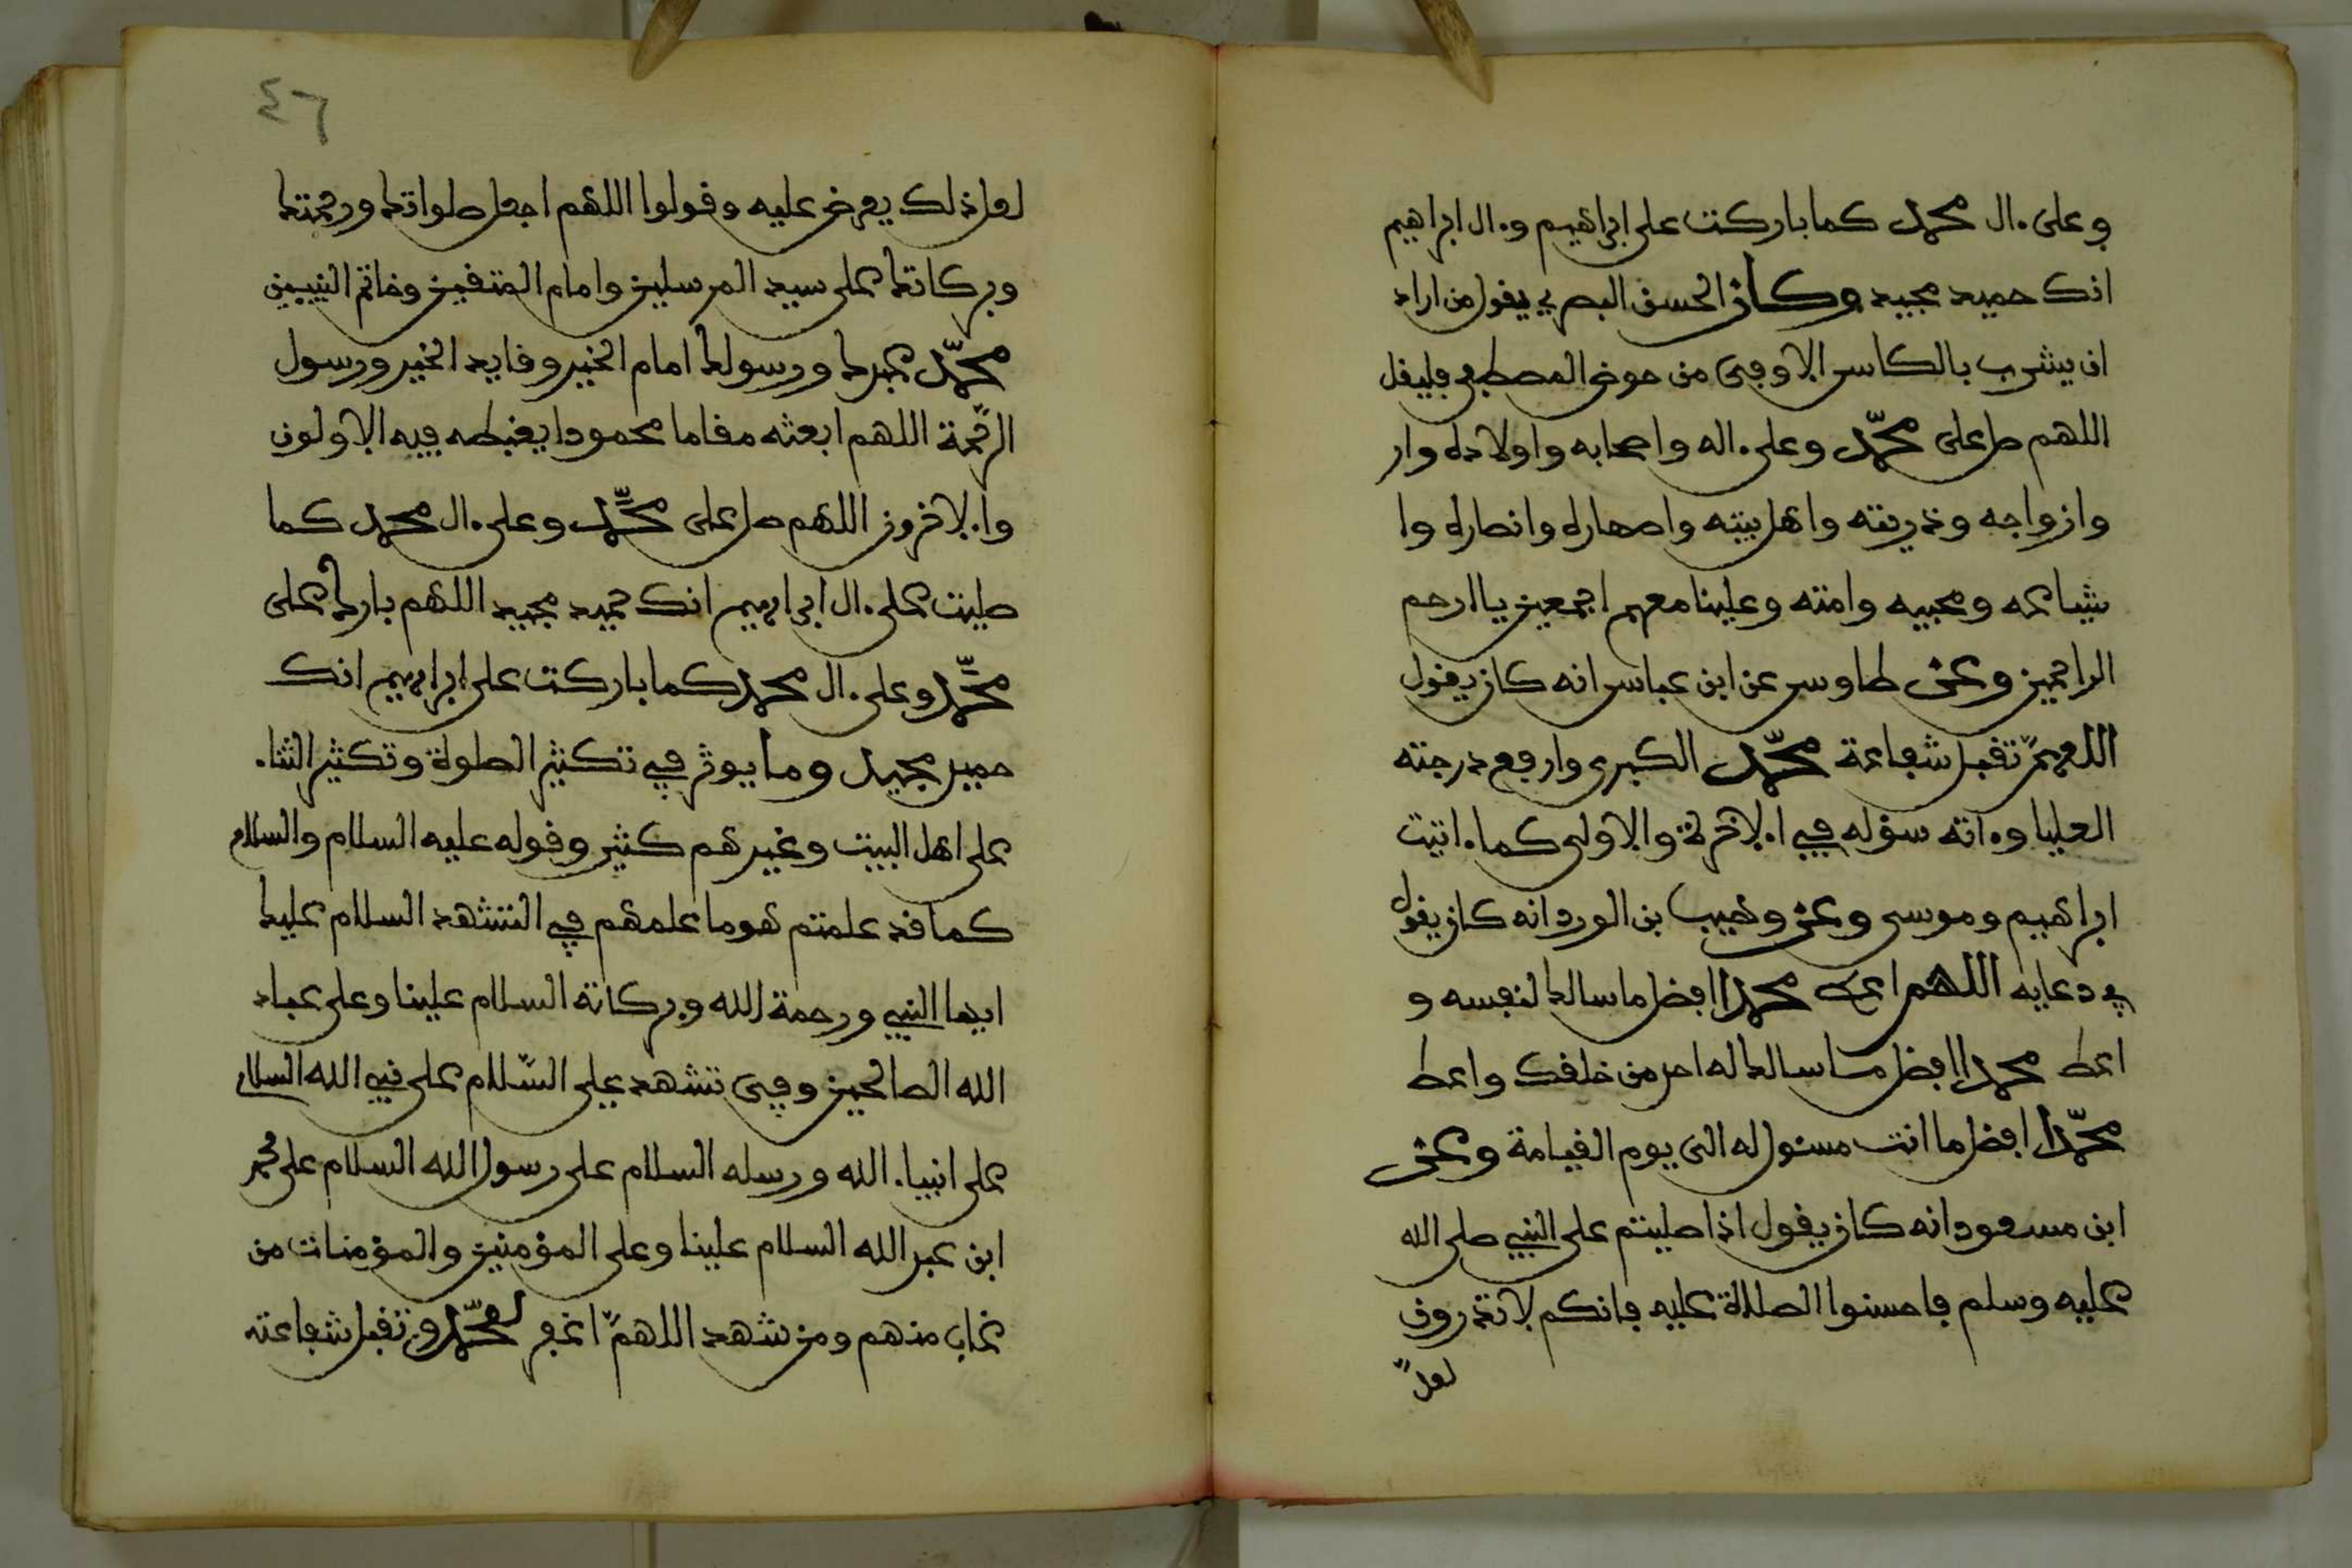 وعلى ءال محمد كما باركت على ابراهيم وءال ابراهيم
انك حميد مجيد وكان الحسن البصري يقول من اراد
ان يشرب بالكاس الاوفى من حوض المصطفى فليقل
اللهم صل على محمد وعلى ءاله واصحابه واولاده وار
وازواجه وذريته واهل بيته واصهاره وانصاره وا
شياعه ومحبيه وامته وعلينا معهم اجمعين يا ارحم
الراحمين وعن طاوس عن ابن عباس انه كان يقول
اللهمّ تقبل شفاعة محمّد الكبرى وارفع درجته
العليا وءاته سؤله في الاخرة والاولى كما ءاتيت
ابراهيم وموسى وعن وهيب بن الورد انه كان يقول
في دعايه اللهم اعط محمدا افضل ما سالك لنفسه و
اعط محمدا افضل ما سالك له احد من خلقك واعط
محمّدا افضل ما انت مسئول له الى يوم القيامة وعن
ابن مسعود انه كان يقول اذا صليتم على النبي صلى الله
عليه وسلم فاحسنوا الصلاة عليه فانكم لا تدرون
لعلّ
٤٦
لعل ذلك يعرض عليه وقولوا اللهم اجعل صلواتك ورحمتك
وبركاتك على سيد المرسلين وامام المتقين وخاتم النبيين
محمّد عبدك ورسولك امام الخير وقايد الخير ورسول
الرّحمة اللهم ابعثه مقاما محمودا يغبطه فيه الاولون
والاخرون اللهم صل على محمّد وعلى ءال محمد كما
صليت على ءال ابراهيم انك حميد مجيد اللهم بارك على
محمّد وعلى ءال محمد كما باركت على ابراهيم انك
حميد مجيد وما يوثر في تكثير الصلوة وتكثير الثناء
على اهل البيت وغيرهم كثير وقوله عليه السلام والسلام
كما قد علمتم هو ما علمهم في التشهد السلام عليك
ايها النبي ورحمة الله وبركاته السلام علينا وعلى عباد
الله الصالحين وفى تشهد علي السّلام على نبي الله السلام
على انبياء الله ورسله السلام على رسول الله السلام على محمد
ابن عبد الله السلام علينا وعلى المؤمنين والمؤمنات من
غاب منهم ومن شهد اللهمّ اغفر لمحمّد وتقبل شفاعته